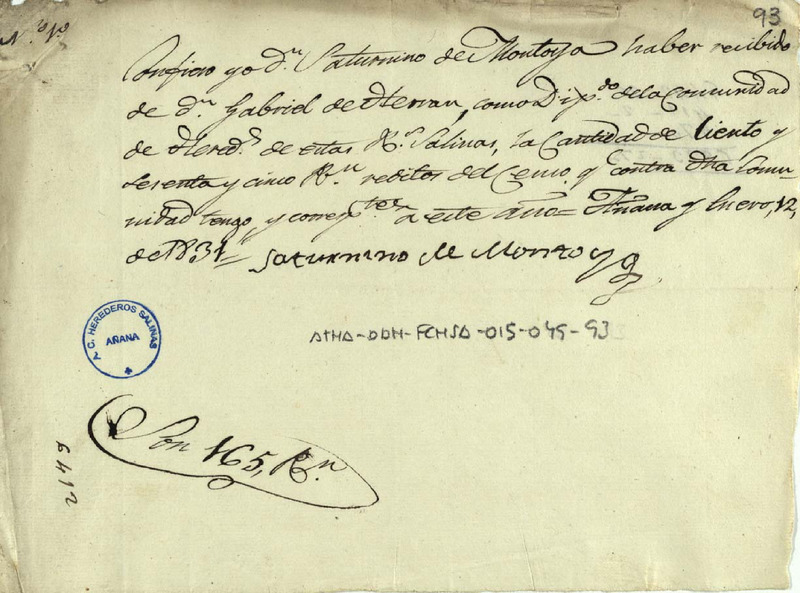 93
N.º 1.º
Confieso yo d.n Saturnino de Montoya haber recibido
de d.n Gabriel de Herran, como Dip.do de la Comunidad
de Hered.s de estas R.s Salinas, la Cantidad de Ciento y
sesenta y cinco R.n reditos del Censo q.e contra dha Comu-
nidad tengo, y corresp.tes a este año= Añana y Enero, 12,
de 1831= Saturnino de Montoya
C. HEREDEROS SALINAS
AÑANA
ATHA-DDH-FCHSA-015-045-93
Son 165, R.n